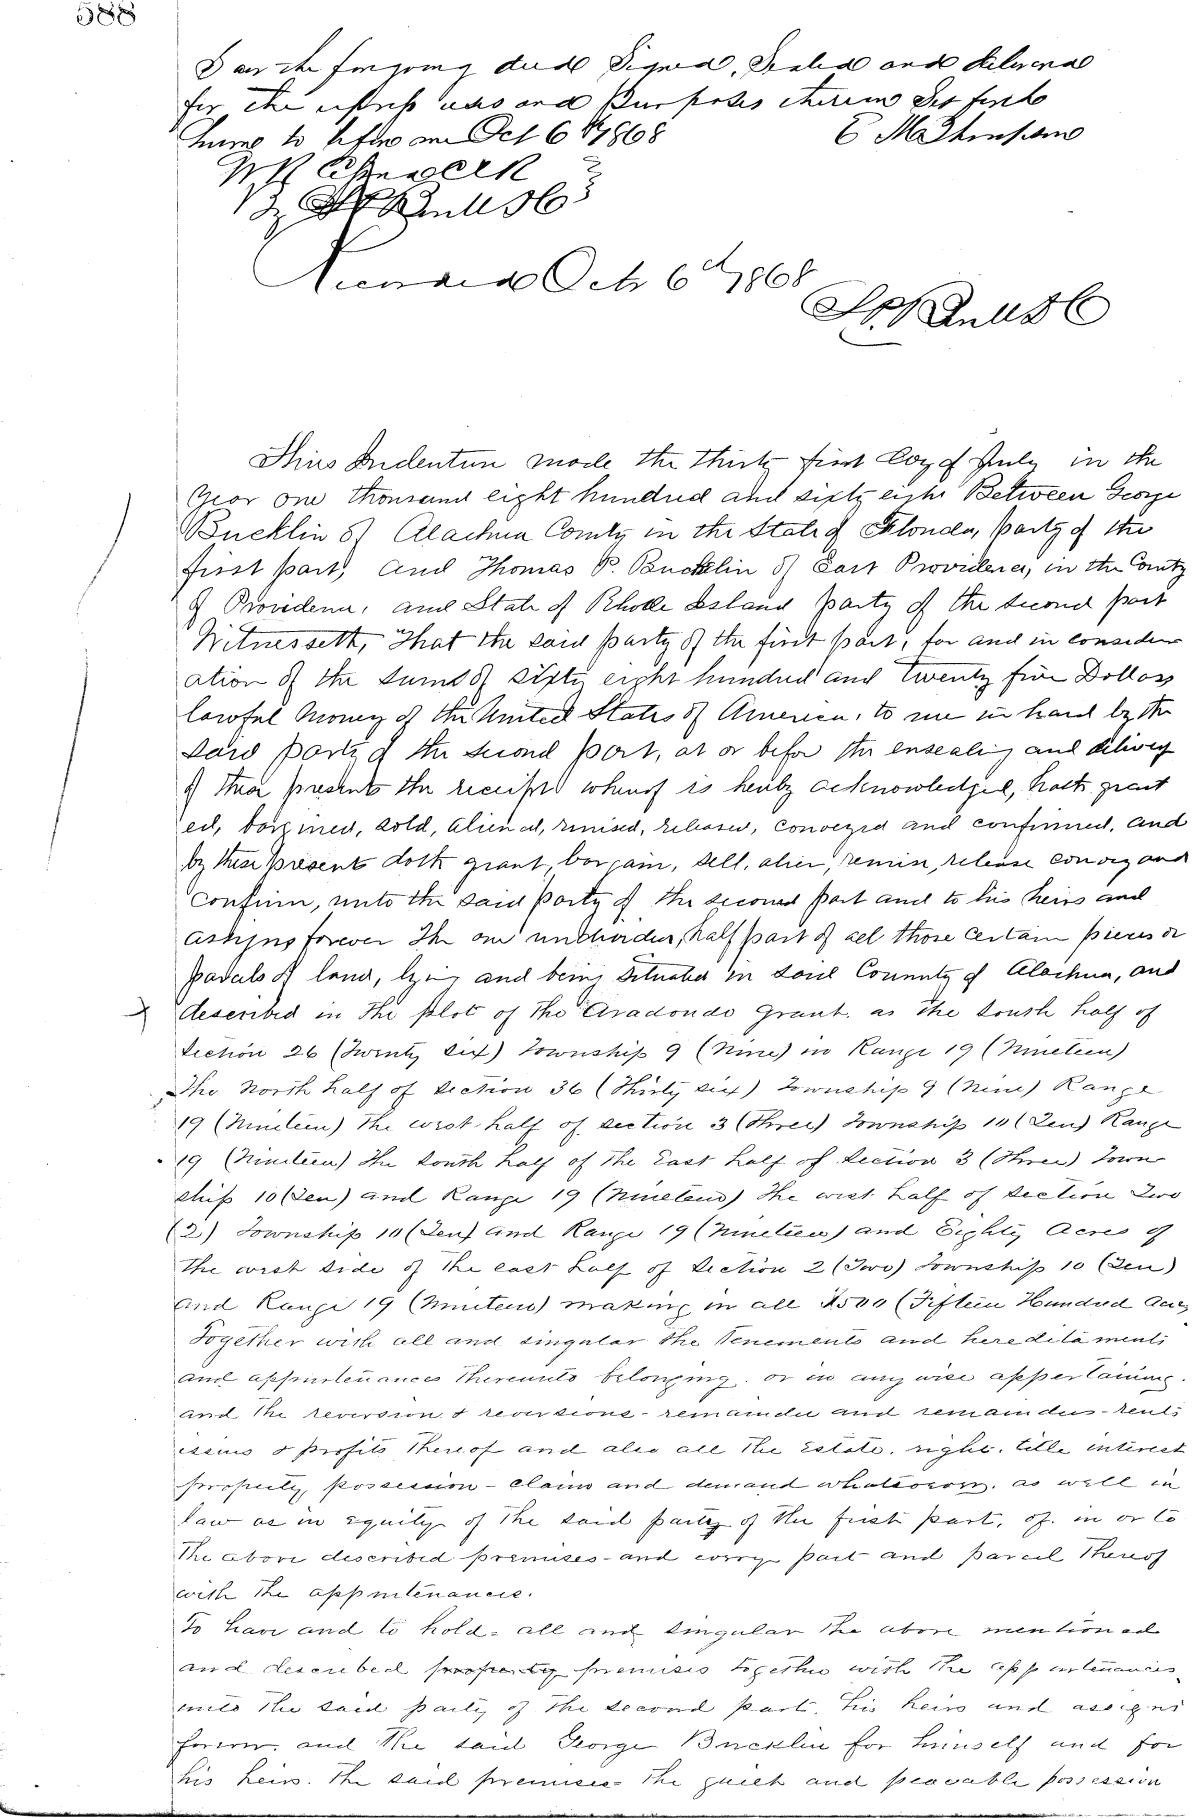 588
saw the foregoing deed Signed, Sealed and delivered
for the express uses and Purposes therein Set forth
Sworn to before me Oct 6th 1868 E M Thompson
Clerk
By
Recorded Oct 6th 1868
This Indenture made the thirty first Day of July in the
Year one thousand eight hundred and sixty eight Between George
Bucklin of Alachua County in the State of Florida, party of the
first part, and Thomas P. Bucklin of East Providence, in the County
of Providence, and State of Rhode Island party of the second part
Witnesseth, That the said party of the first part, for and in consider
ation of the sums of sixty eight hundred and twenty five Dollars
lawful money of the United States of America, to me in hand by the
said party of the second part, at or before the ensealing and delivery
of these presents the receipt whereof is hereby acknowledged, hath grant
ed, bargined, sold, aliened, remised, released, conveyed and confirmed, and
by these presents doth grant, bargain, sell, alien, remise, release convey and
confirm, unto the said party of the second part and to his heirs and
assigns forever The one undivided, half part of all those certain pieces or
parcels of land, lying and being situated in said Counnty of Alachua, and
described in the plot of the Aradondo grant. as the south half of
Section 26 (Twenty six) Township 9 (Nine) in Range 19 (Nineteen)
The North half of section 36 (Thirty six) Township 9 (Nine) Range
19 (Nineteen) The west half of section 3 (Three) Township 10 (Ten) Range
19 (Nineteen) The south half of the East half of Section 3 (Three) Town
ship 10 (Ten) and Range 19 (Nineteen) The west half of section Two
(2) Township 10 (Ten) and Range 19 (Nineteen) and Eighty Acres of
the west side of the east half of Section 2 (Two) Township 10 (Ten)
and Range 19 (Nineteen) making in all 1500 (Fifteen Hundred Acres
Together with all and singular the Tenements and hereditaments
and appurtenances thereunto belonging. or in any wise appertaining.
and the reversion & reversions - remainder and remainders - rents
issues & profits thereof and also all the Estate. right. title interest
property, possession - claim and demand whatsoever. as well in
law as in equity of the said party of the first part, of. in or to
the above described premises - and every part and parcel thereof
with the appurtenances.
To have and to hold - all and singular the above mentioned
and described property premises together with the appurtenances
unto the said party of the second part. his heirs and assigns
forever. and the said George Bucklin for himself and for
his heirs. the said premises - the quiet and peacable possession